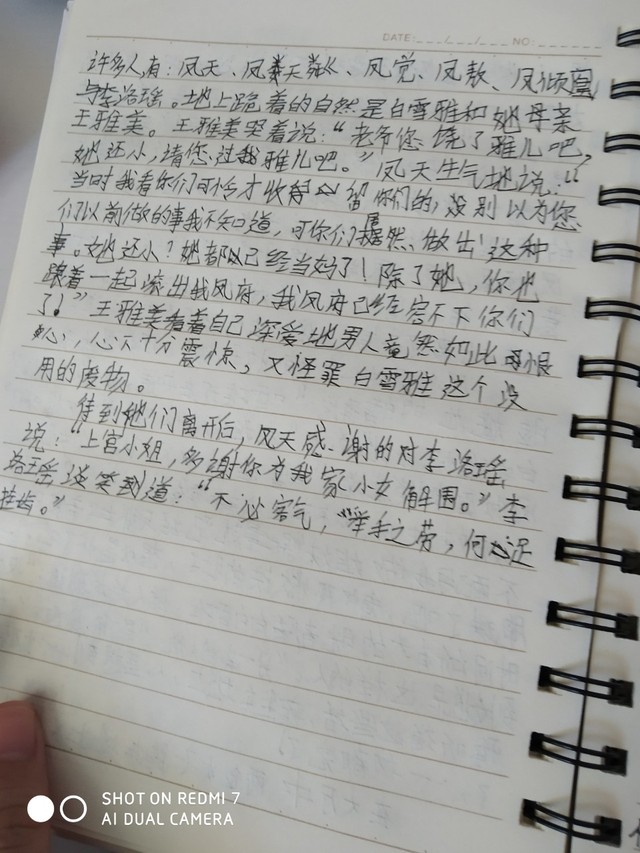 DATE: ___/___/___ NO: ______
许多人,有:凤天、凤天、凤觉、凤敖、凤倾凰
与李洛瑶。地上跪着的自然是白雪雅和她母亲
王雅美。王雅美哭着说:“老爷您饶了雅儿吧,
她还小,请您过我雅儿吧。”凤天生气地说:“
当时我看你们可怜才收留你们的,没别以为您
们以前做的事我不知道,可你们居然、做出这种
事。她还小?她都已经当妈了!除了她,你也
跟着一起滚出我凤府,我凤府已经容不下你们
了!”王雅美看着自己深爱地男人竟然如此恨
心,心示十分震惊,又怪罪白雪雅这个没
用的废物。
等到他们离开后,凤天感谢的对李洛瑶
说:“上官小姐,多謝你为我家小女解围。”李
洛瑶谈笑到道:“不必客气,举手之劳,何足
挂齿。”
SHOT ON REDMI 7
AI DUAL CAMERA